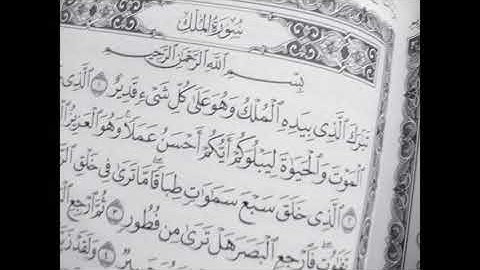 سُورَةُ المُلْكِ
بِسْمِ ٱللَّهِ ٱلرَّحْمَٰنِ ٱلرَّحِيمِ
تَبَٰرَكَ ٱلَّذِى بِيَدِهِ ٱلْمُلْكُ وَهُوَ عَلَىٰ كُلِّ شَىْءٍ قَدِيرٌ ١ ٱلَّذِى
ٱلْمَوْتَ وَٱلْحَيَوٰةَ لِيَبْلُوَكُمْ أَيُّكُمْ أَحْسَنُ عَمَلًا وَهُوَ ٱلْعَزِيزُ
ٱلَّذِى خَلَقَ سَبْعَ سَمَٰوَٰتٍ طِبَاقًا مَّا تَرَىٰ فِى خَلْقِ
فَٱرْجِعِ ٱلْبَصَرَ هَلْ تَرَىٰ مِن فُطُورٍ ٣ ثُمَّ ٱرْجِعِ
٤ وَلَقَدْ